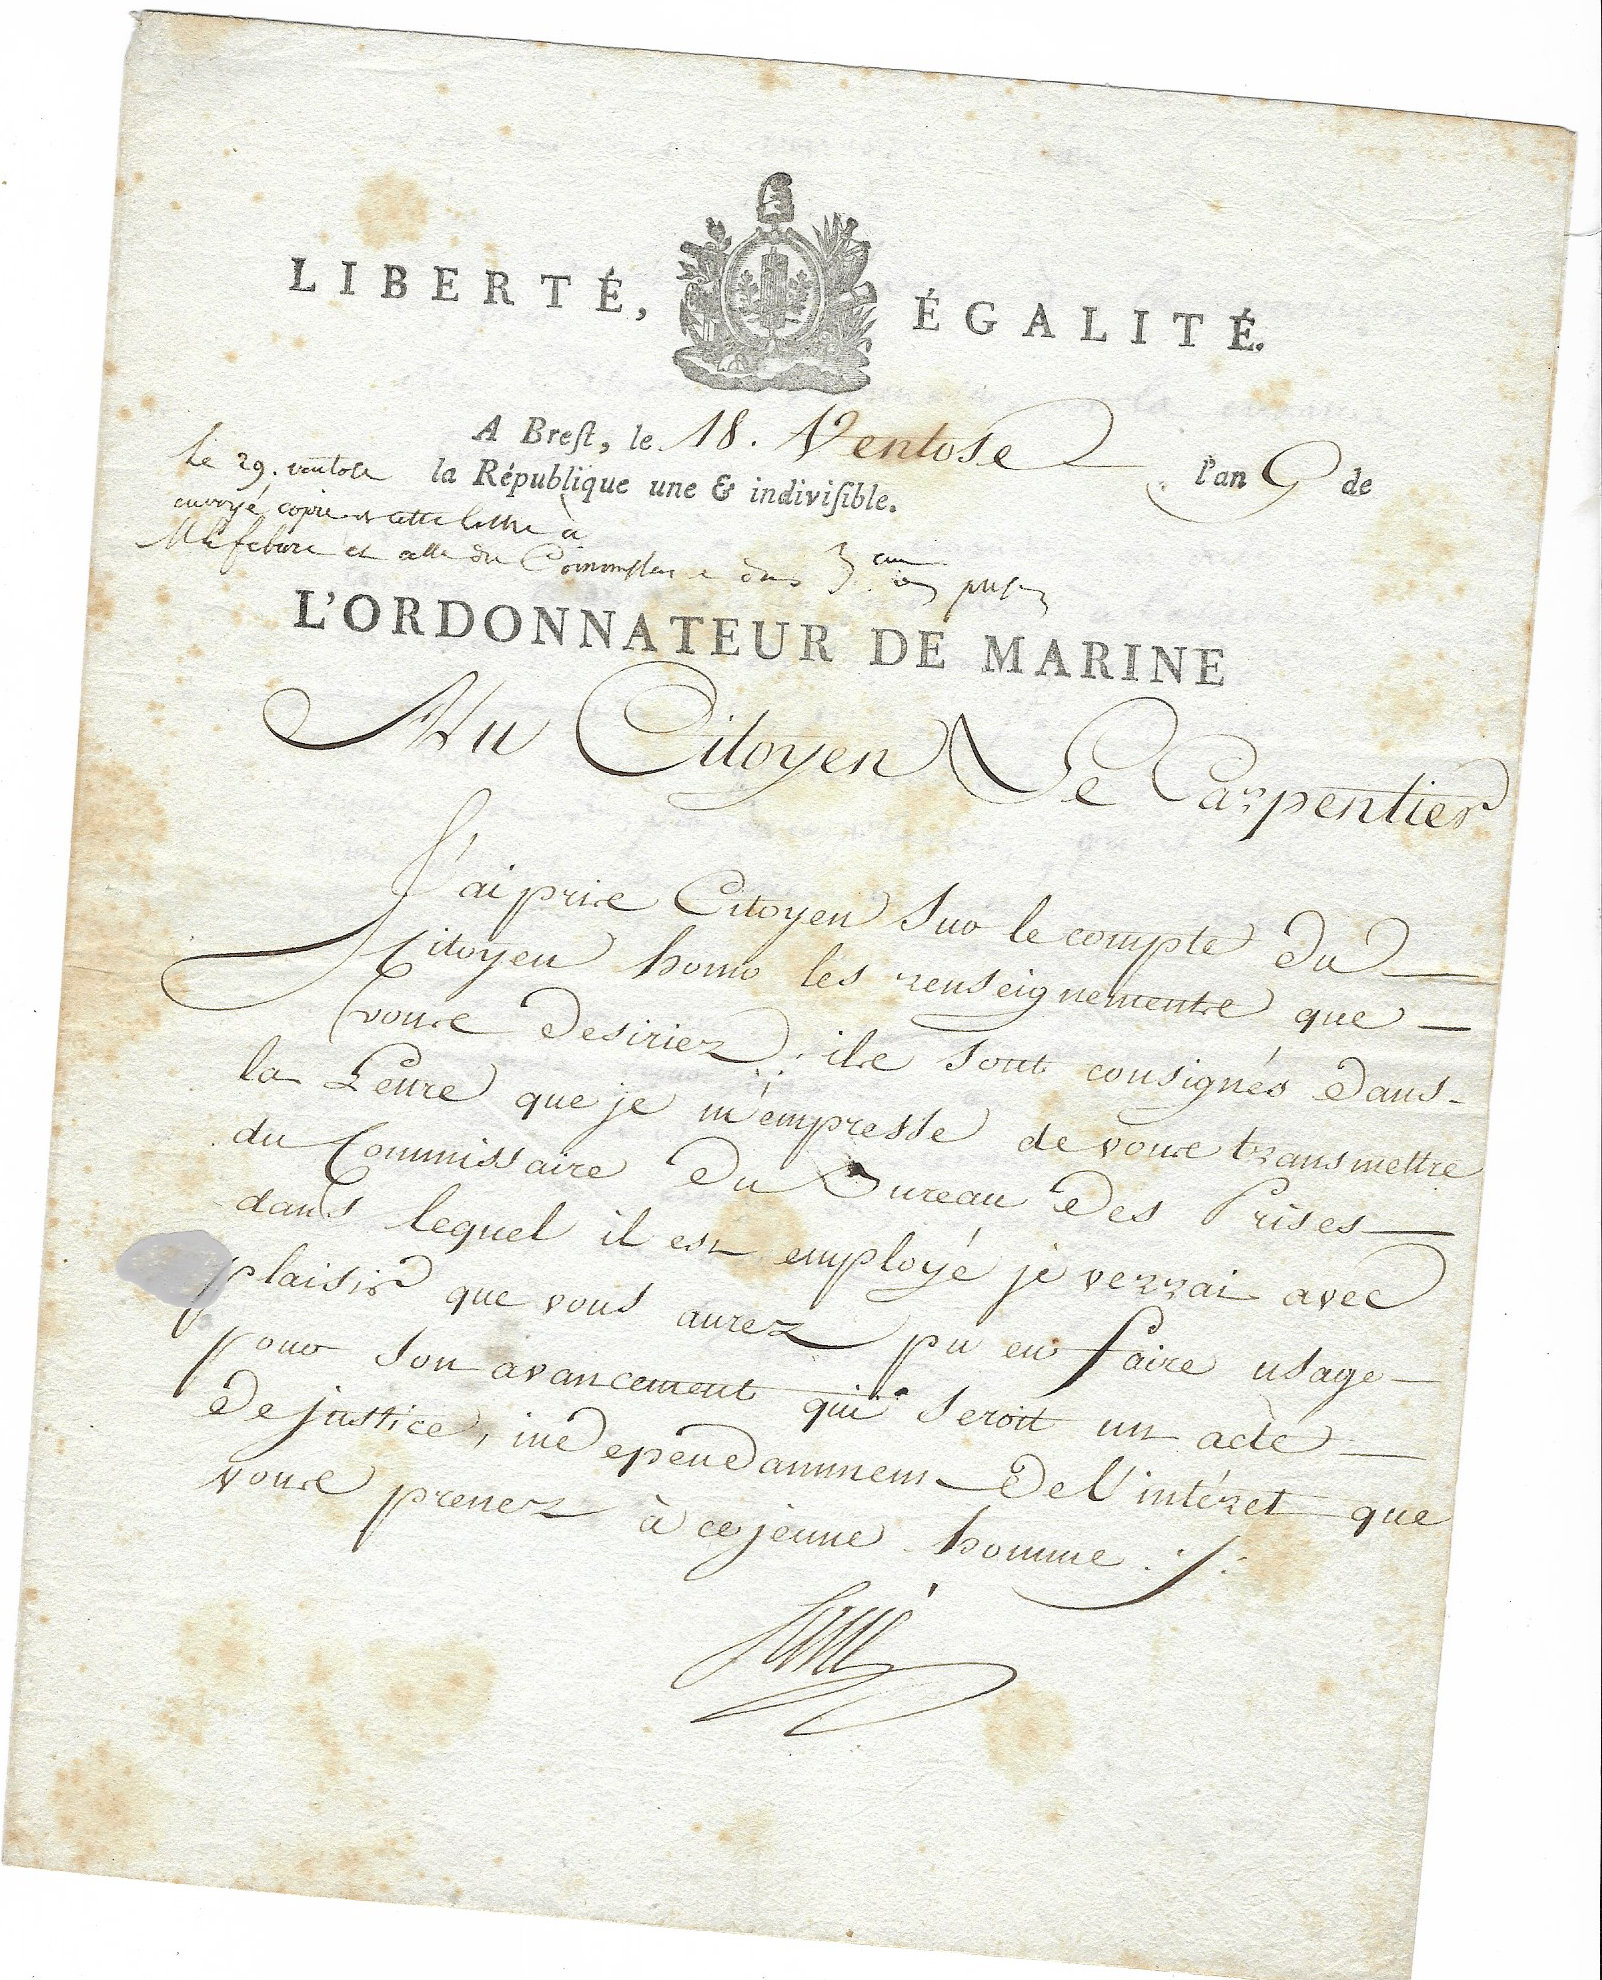 LIBERTÉ, ÉGALITÉ.
A Brest, le 18. Ventose l'an 9 de
la République une & indivisible.
Le 29. ventose
envoyé copie de cette lettre à
M Lefebvre et celle du
L'ORDONNATEUR DE MARINE
Au Citoyen Le Carpentier
J'ai pris Citoyen Sur le compte du
Citoyen homo les renseignements que
vous desiriez, ils sont consignés dans
la Lettre que je m'empresse de vous transmettre
du Commissaire du Bureau des Prises
dans lequel il est employé je verrai avec
plaisir que vous aurez pu en faire usage
pour son avancement qui seroit un acte
de justice, independamment de l'intéret que
vous prenez à ce jeune homme ./.